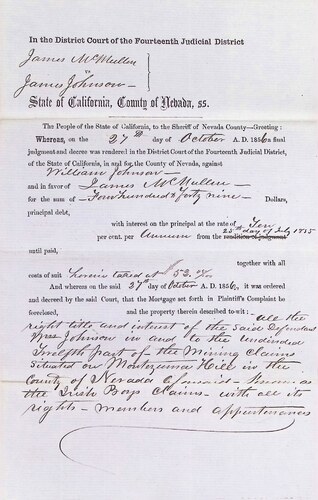 In the District Court of the Fourteenth Judicial District
James McMullen
vs
James Johnson
State of California, County of Nevada, ss.
The People of the State of California, to the Sheriff of Nevada County—Greeting:
Whereas, on the 27th day of October A. D. 1856 a final
judgment and decree was rendered in the District Court of the Fourteenth Judicial District,
of the State of California, in and for the County of Nevada, against
William Johnson
and in favor of James McMullen
for the sum of Four hundred & forty nine Dollars,
principal debt,
with interest on the principal at the rate of Ten
per cent. per Annum from the rendition of judgment 25th day of July 1855
until paid,
together with all
costs of suit herein taxed at $52.
And whereas on the said 27th day of October A. D. 1856, it was ordered
and decreed by the said Court, that the Mortgage set forth in Plaintiff's Complaint be
foreclosed, and the property therein described to wit: all the
right title and interest of the said Defendant
Johnson in and to the undivided
Twelfth part of the Mining Claims
situated on Montezuma Hill in the
County of Nevada aforesaid - Known as
the Irish Boys Claims - with all its
rights - members and appurtenances